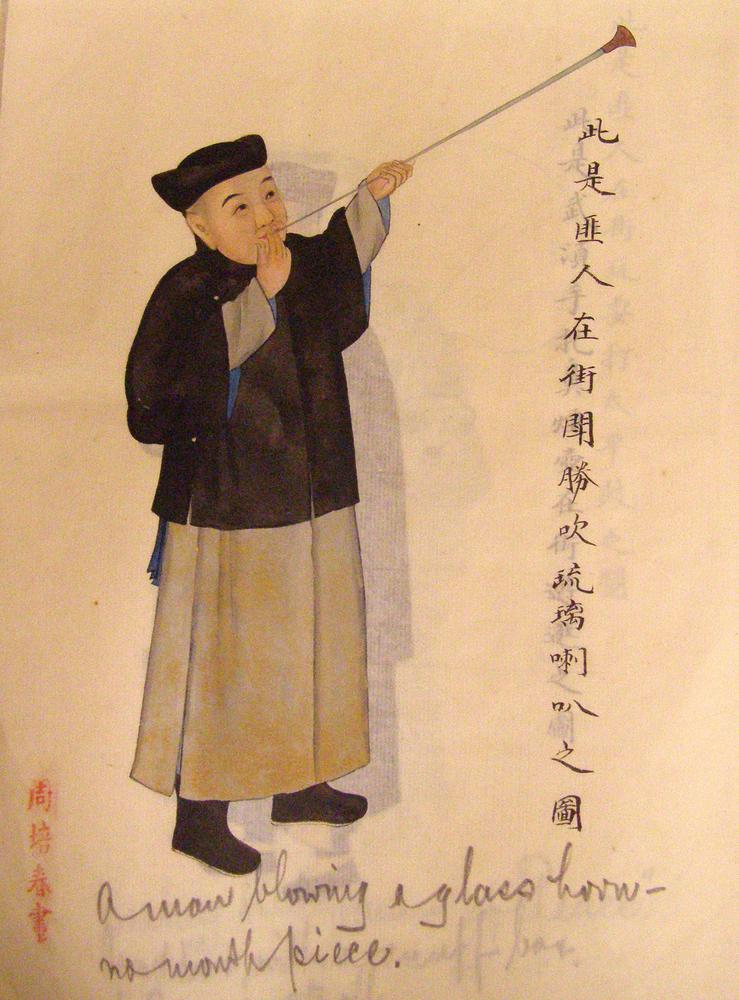 此是匪人在街閗勝吹琉璃喇叭之圖
周培春畫
A man blowing a glass horn-
no mouth piece.